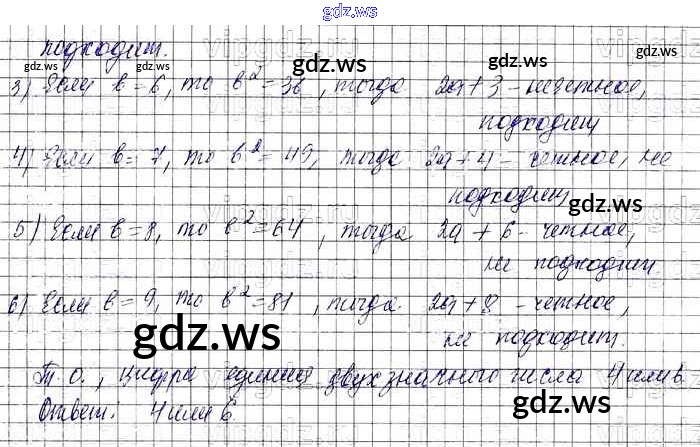 gdz.ws
подходит.
gdz.ws
gdz.ws
gdz.ws
3) Если b=6, то b²=36, тогда 2a+3 - нечетное,
подходит
4) Если b=7, то b²=49, тогда 2a+4 - четное, не
подходит
gdz.ws
5) Если b=8, то b²=64, тогда 2a+6 - четное,
не подходит
6) Если b=9, то b²=81, тогда 2a+8 - четное,
не подходит.
gdz.ws
gdz.ws
Т.о., цифра единиц двухзначного числа 4 или 6.
Ответ. 4 или 6.
gdz.ws
gdz.ws